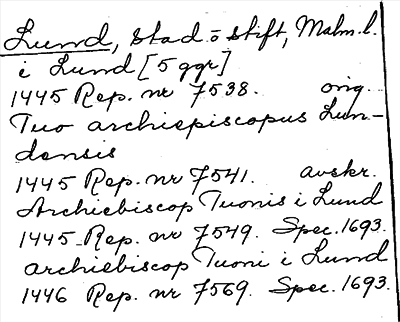 Lund, stad o stift, Malm. l.
i Lund [5 ggr]
1445 Rep. nr 7538. orig.
Tuo archiepiscopus Lun-
densis
1445 Rep. nr 7541. avskr.
Archiebiscop Tuonis i Lund
1445 Rep. nr 7549. Spec. 1693.
archiebiscop Tuoni i Lund
1446 Rep. nr 7569. Spec. 1693.